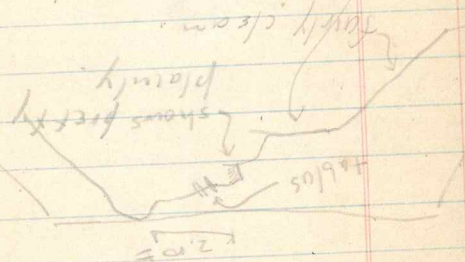 talus
shows pretty
plainly.
fairly clean.